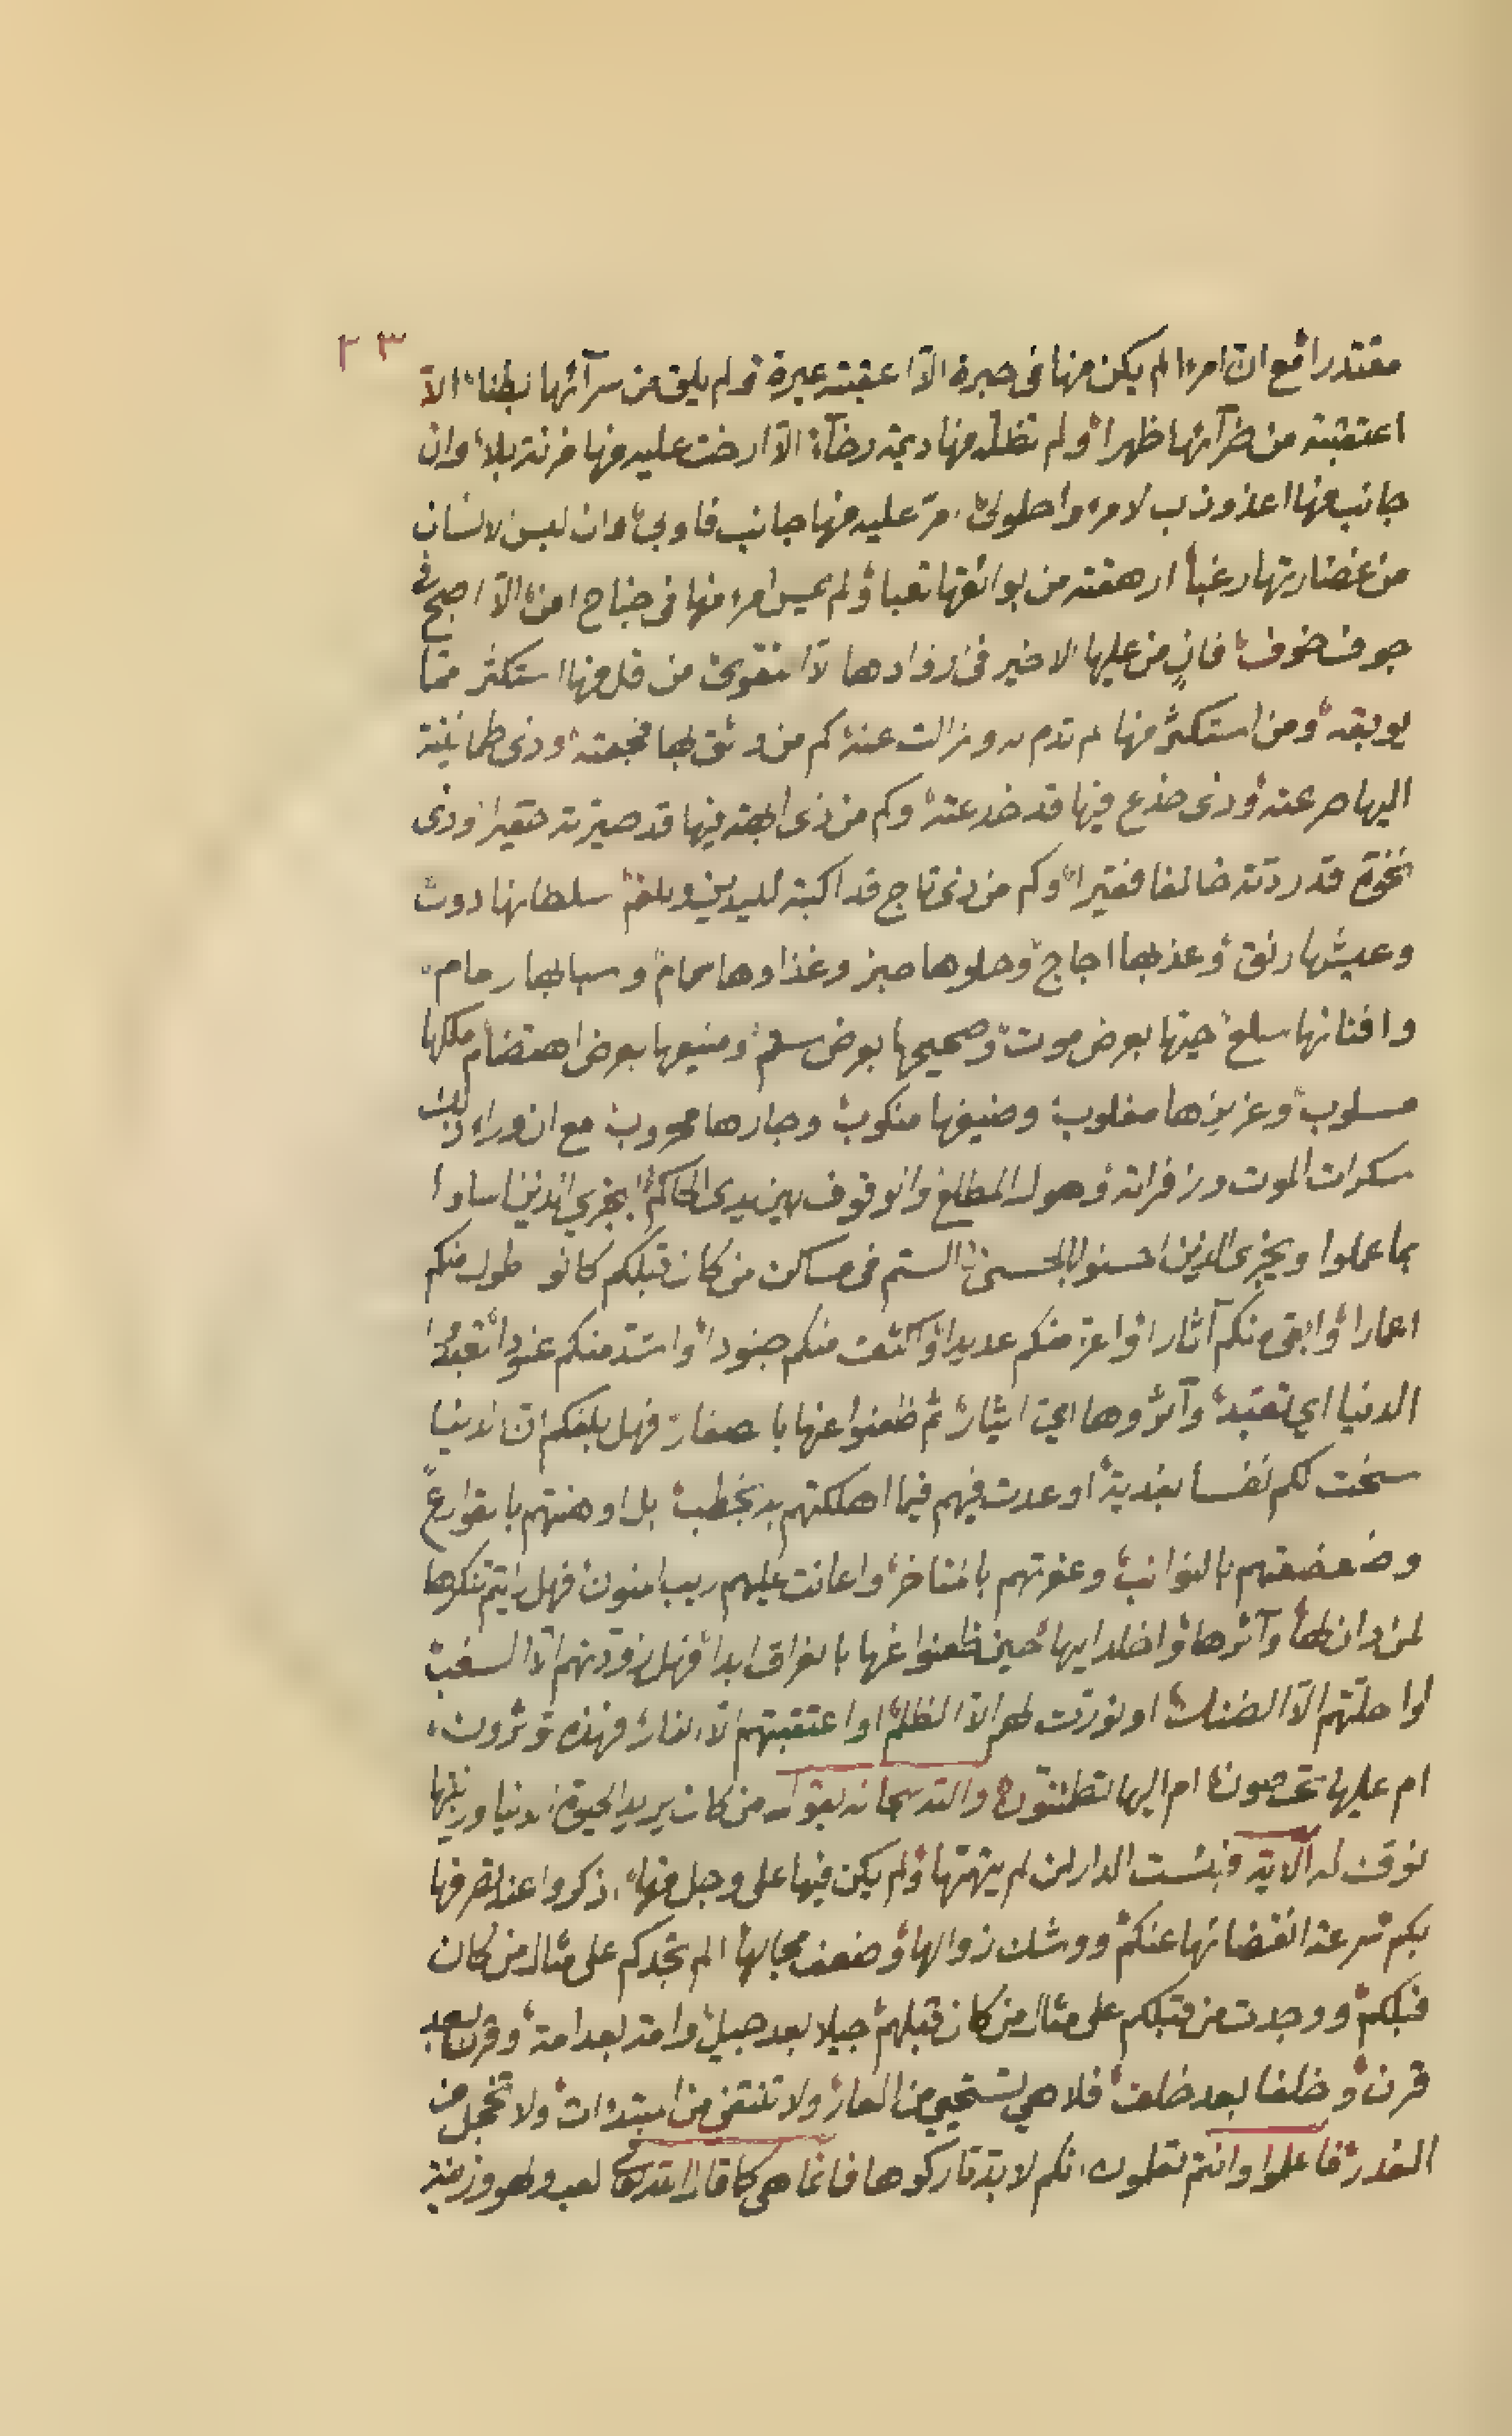 ٢٣
مقتدرا مع ان امرءا لم يكن منها فى حبرة الّا اعقبته عبرة ولم يلق من سرآئها بطنا الّا
اعتقبته من ضرآئها ظهرا ولم تظلّه منها ديمة رخآء الّا ارخت عليه منها مزنة بلاء وان
جانب منها اعذوذب لامرء واحلولى امرّ عليه منها جانب فاوبى وان لبس الانسان
من غضارتها رغبا ارهقته من بوائقها تعبا ولم يمس امرء منها فى جناح امن الّا اصبح فى
جوف خوف فانٍ من عليها لا خير فى ازوادها الّا التقوى من قل منها استكثر ممّا
يوبقه ومن استكثر منها لم تدم له وزالت عنه كم من وثق بها فجعته وذى طمانينة
اليها صرعته وذى خدع فيها قد خدعته وكم من ذى ابهة فيها قد صيّرته حقيرا وذى
نخوة قد ردّته خائفا فقيرا وكم من ذى تاج قد اكبته لليدين وللفم سلطانها دول
وعيشها رنق وعذبها اجاج وحلوها صبر وغذاوها سمام واسبابها رمام
وافنانها سلع حيها بعرض موت وصحيحها بعرض سقم ومنيعها بعرض اهتضام ملكها
مسلوب وعزيزها مغلوب وضيفها منكوب وجارها محروب مع ان وراء ذلك
سكرات الموت وزفراته وهول المطلع والوقوف بين يدى الحاكم ليجزي الذين اساوا
بما عملوا ويجزى الذين احسنوا بالحسنى الستم فى مساكن من كان قبلكم كانوا طول منكم
اعمارا وابقى منكم آثارا واعز منكم عديدا واكثف منكم جنودا واشدّ منكم عنودا تعبدوا
الدنيا اي تعبّد وآثروها اي ايثار ثم ظعنوا عنها با صغار فهل بلغكم انّ الدنيا
سخت لكم نفسا بفدية او عدت فيهم فيما اهلكتهم به بخطب بل اوهنتهم بالقوارع
وضعضعتهم بالنوائب وعفرتهم بالمناخر واعانت عليهم ريب المنون فهل رايتم تنكرها
لمن دان لها وآثرها واخلد اليها حين ظعنوا عنها بالفراق ابدا فهل زوّدتهم الّا السغب
او احلّتهم الّا الضنك او نوّرت لهم الّا الظلم او اعتقبتهم الّا النار فهذه تؤثرون
ام عليها تحرصون ام اليها تطمئنّون والله سبحانه يقول من كان يريد الحيوة الدنيا وزينتها
نوف له الاية فبئست الدار لمن لم يتهمّها ولم يكن فيها على وجل منها اذكروا عند تصرفها
بكم سرعة انقضائها عنكم ووشك زوالها وضعف مجالها الم تجدكم على مثال من كان
قبلكم ووجدت من قبلكم على مثال من كان قبلهم جيلا بعد جيل وامة بعد امة وقرن بعد
قرن وخلفا بعد خلف فلا هي تستحيي من العار ولا تنتقى من المبتذوات ولا تخجل من
الغدر فاعلموا وانتم تعلمون انكم لا بدّ تاركوها فانما هى كما قال الله لعب ولهو وزينة